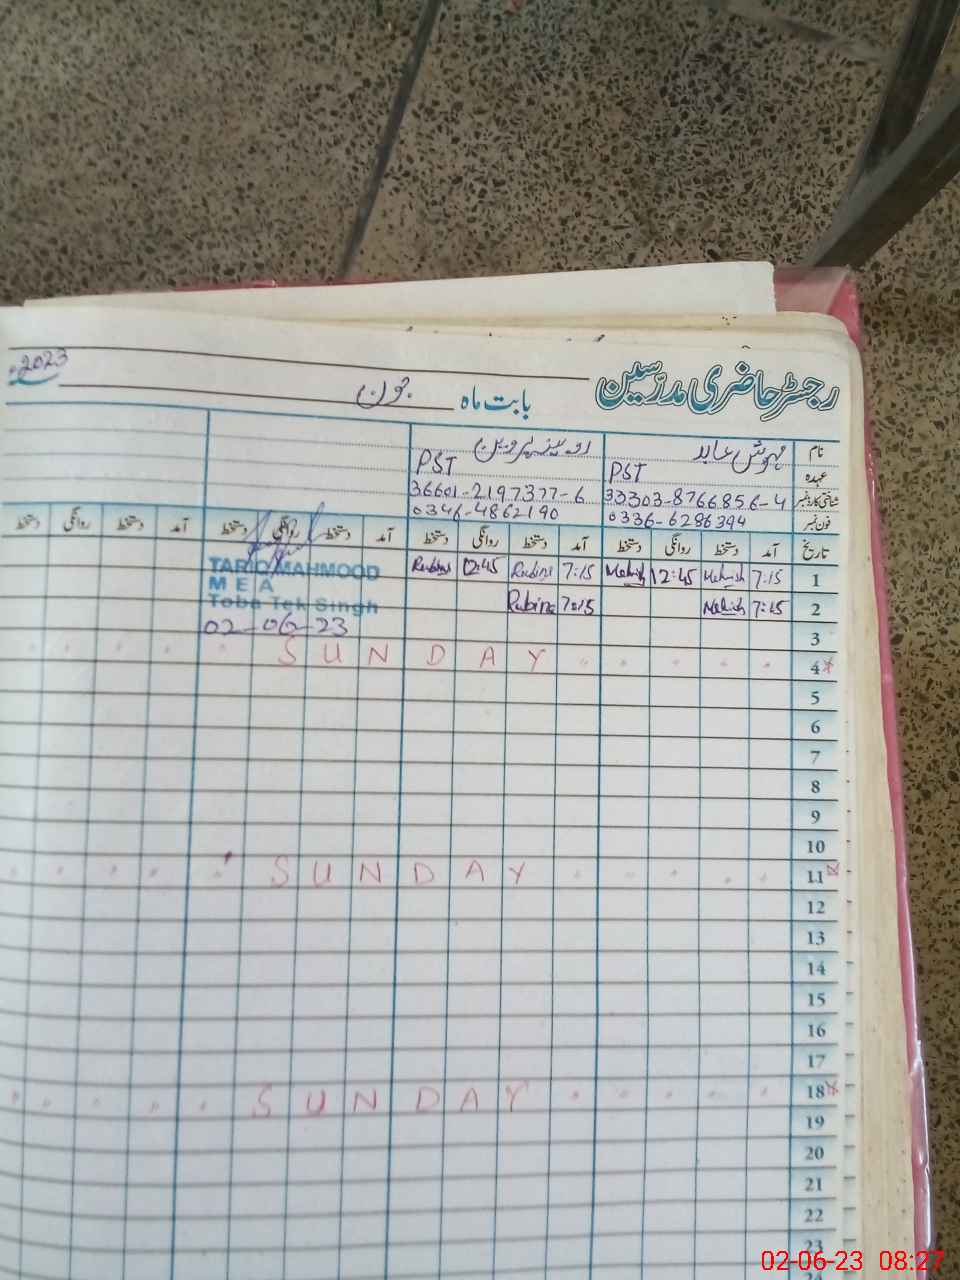 رجسٹر حاضری مدرّسین بابت ماہ جون 2023ء
نام مہوش عابد روبینہ پروین
عہدہ PST PST
شناختی کارڈ نمبر 33303-8766856-4 36601-2197377-6
فون نمبر 0336-6286394 0346-4862190
تاریخ آمد دستخط روانگی دستخط آمد دستخط روانگی دستخط آمد دستخط روانگی دستخط آمد دستخط روانگی دستخط
1 7:15 Mehwish 12:45 Mehwish 7:15 Rubina 12:45 Rubina
TARIQ MAHMOOD
M E A
2 7:15 Mehwish 7:15 Rubina
Toba Tek Singh
02-06-23
3
4 SUNDAY
5
6
7
8
9
10
11 SUNDAY
12
13
14
15
16
17
18 SUNDAY
19
20
21
22
23
24
02-06-23 08:27